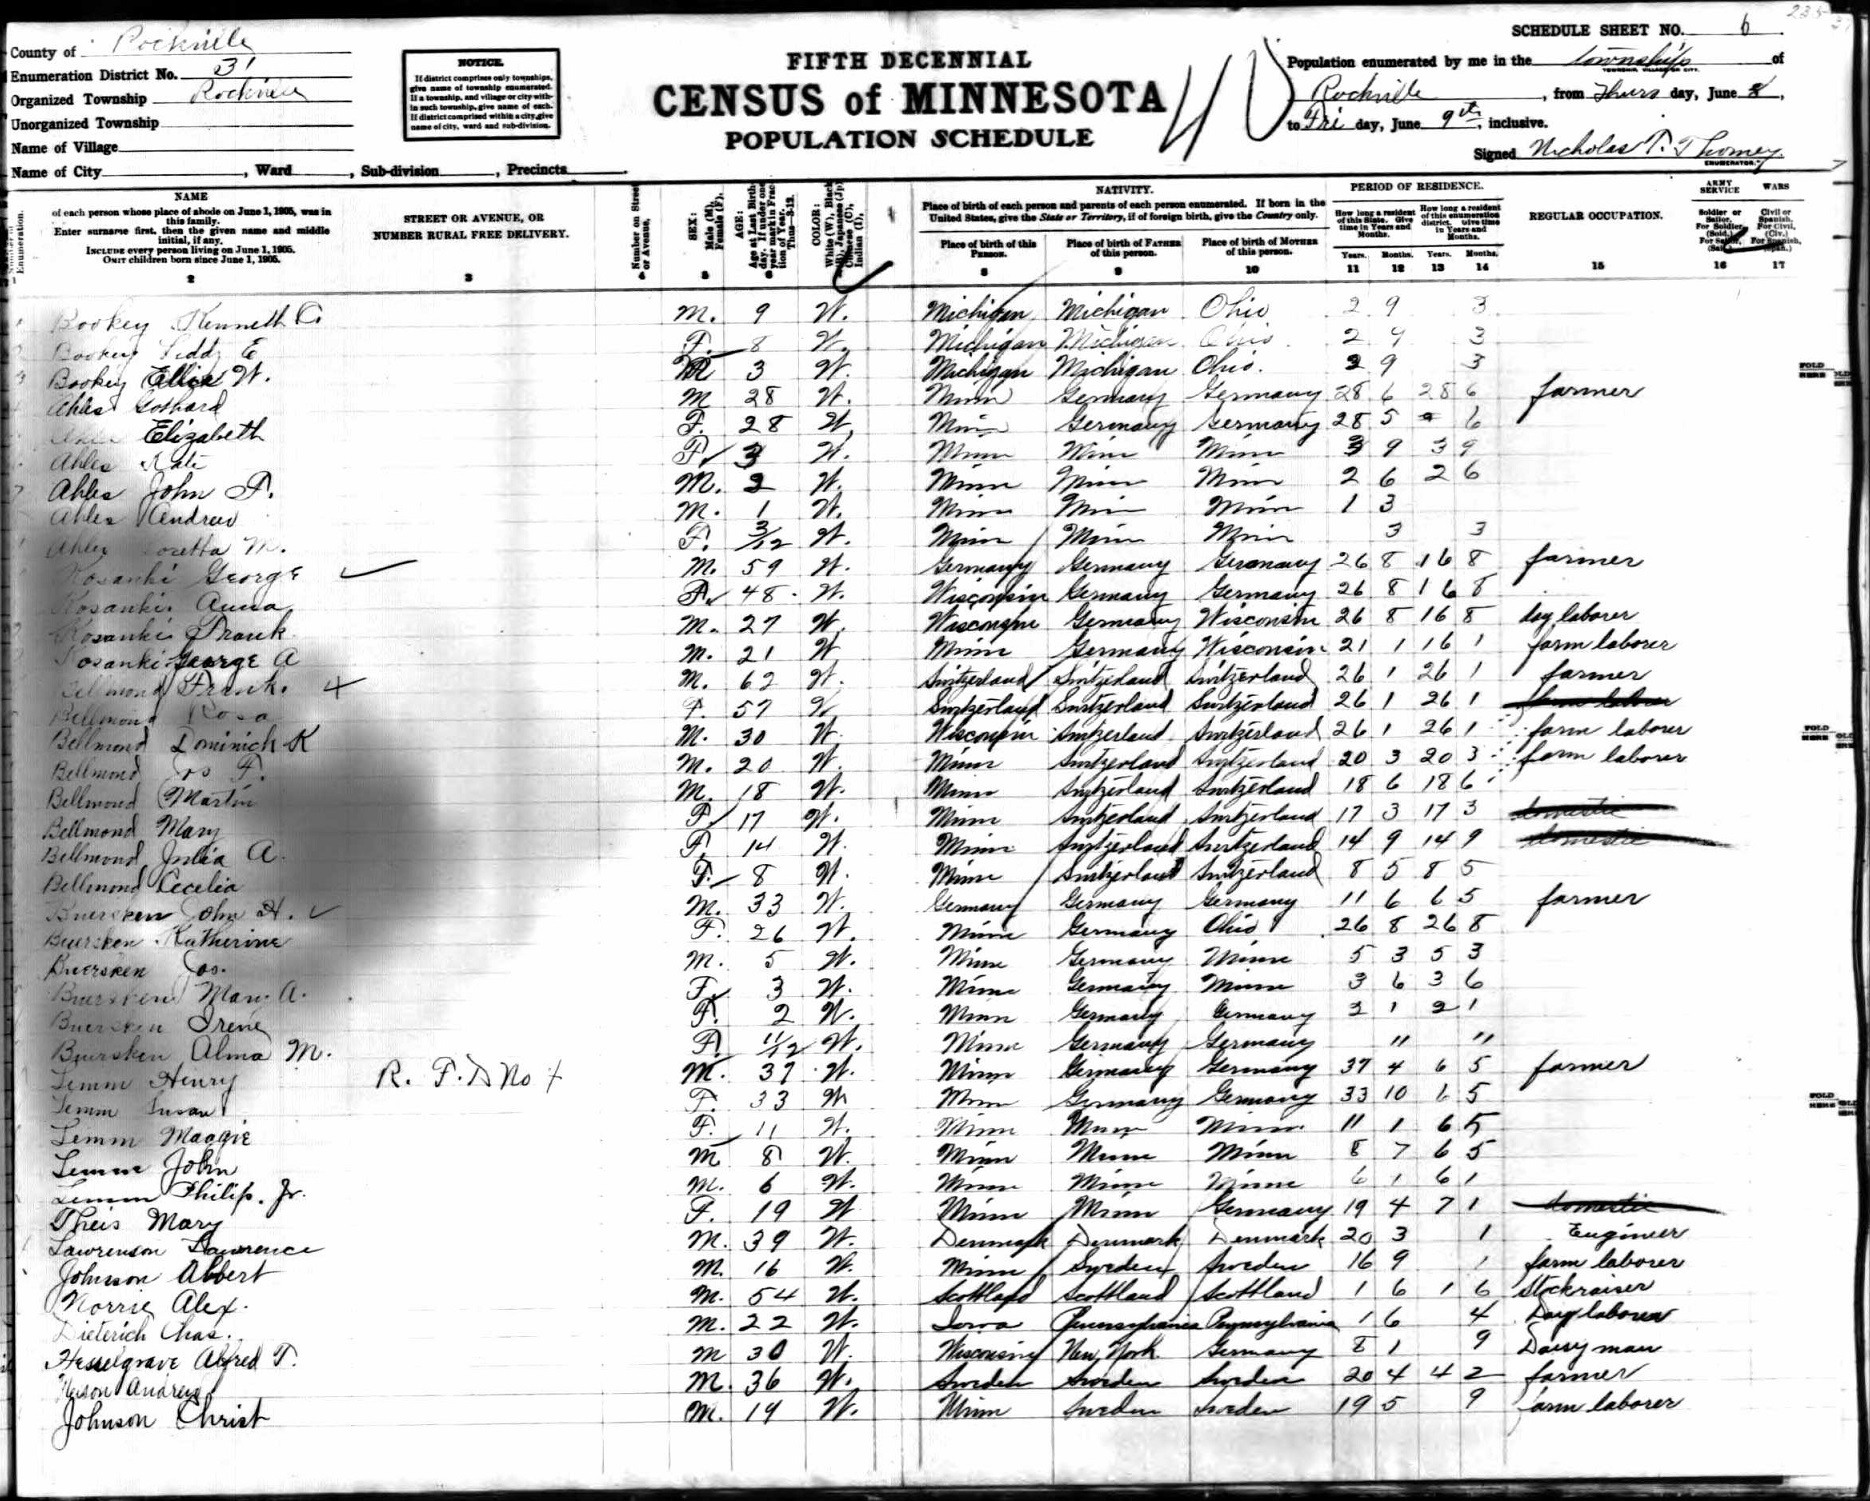 SCHEDULE SHEET NO. 6
County of Rockville
Enumeration District No. 31
Organized Township Rockville
Unorganized Township
Name of Village
Name of City , Ward , Sub-division , Precincts
NOTICE.
If district comprises only townships, give name of township enumerated. If a township, and village or city within such township, give name of each. If district comprised within a city, give name of city, ward and sub-division.
FIFTH DECENNIAL
CENSUS of MINNESOTA
POPULATION SCHEDULE
40
Population enumerated by me in the township of
TOWNSHIP, VILLAGE OR CITY.
Rockville , from Thurs day, June 8,
to Fri day, June 9th, inclusive.
Signed Nicholas P. Thomey
ENUMERATOR.
NAME
of each person whose place of abode on June 1, 1905, was in this family.
Enter surname first, then the given name and middle initial, if any.
INCLUDE every person living on June 1, 1905.
OMIT children born since June 1, 1905.
STREET OR AVENUE, OR NUMBER RURAL FREE DELIVERY.
Number on Street or Avenue.
SEX: Male (M), Female (F).
AGE: Age at Last Birthday.
COLOR:
NATIVITY.
Place of birth of each person and parents of each person enumerated. If born in the United States, give the State or Territory, if of foreign birth, give the Country only.
Place of birth of this Person.
Place of birth of FATHER of this person.
Place of birth of MOTHER of this person.
PERIOD OF RESIDENCE.
How long a resident of this State. Give time in Years and Months.
How long a resident of this enumeration district. Give time in Years and Months.
Years. Months. Years. Months.
REGULAR OCCUPATION.
ARMY SERVICE
WARS
2 3 4 5 6 8 9 10 11 12 13 14 15 16 17
Bookey Kenneth C. M. 9 W. Michigan Michigan Ohio 2 9 3
Bookey Liddy E F. 8 W. Michigan Michigan Ohio 2 9 3
Bookey Ellis W. M 3 W. Michigan Michigan Ohio. 2 9 3
Ahles Gothard M 28 W. Minn Germany Germany 28 6 28 6 farmer
Elizabeth F. 28 W. Minn Germany Germany 28 5 6
Ahles Kate F 3 W. Minn Minn Minn 3 9 3 9
Ahles John P. M. 2 W. Minn Minn Minn 2 6 2 6
Ahles Andrew M. 1 W. Minn Minn Minn 1 3
Ahles Loretta M. F. 3/12 W. Minn Minn Minn 3 3
Kosanki George M. 59 W. Germany Germany Germany 26 8 16 8 farmer
Kosanki Anna F. 48 W. Wisconsin Germany Germany 26 8 16 8
Kosanki Frank M. 27 W. Wisconsin Germany Wisconsin 26 8 16 8 day laborer
Kosanki George A M. 21 W Minn Germany Wisconsin 21 1 16 1 farm laborer
Bellmond Frank. M. 62 W. Switzerland Switzerland Switzerland 26 1 26 1 farmer
Bellmond Rosa F. 57 W Switzerland Switzerland Switzerland 26 1 26 1 farm laborer
Bellmond Dominick K M. 30 W. Wisconsin Switzerland Switzerland 26 1 26 1 farm laborer
Bellmond Jos F. M. 20 W. Minn Switzerland Switzerland 20 3 20 3 farm laborer
Bellmond Martin M. 18 W. Minn Switzerland Switzerland 18 6 18 6
Bellmond Mary F 17 W. Minn Switzerland Switzerland 17 3 17 3 domestic
Bellmond Julia A. F. 14 W. Minn Switzerland Switzerland 14 9 14 9 domestic
Bellmond Cecelia F. 8 W. Minn Switzerland Switzerland 8 5 8 5
Buersken John H. M. 33 W. Germany Germany Germany 11 6 6 5 farmer
Buersken Katherine F. 26 W. Minn Germany Ohio 26 8 26 8
Buersken Jos. M. 5 W. Minn Germany Minn 5 3 5 3
Buersken Mary A. F 3 W. Minn Germany Minn 3 6 3 6
Buersken Irene F. 2 W. Minn Germany Germany 2 1 2 1
Buersken Alma M. F 11/12 W. Minn Germany Germany " "
Lemm Henry R. F. D No 4 M. 37 W. Minn Germany Germany 37 4 6 5 farmer
Lemm Susan F. 33 W Minn Germany Germany 33 10 6 5
Lemm Maggie F. 11 W. Minn Minn Minn. 11 1 6 5
Lemm John M 8 W. Minn Minn Minn 8 7 6 5
Lemm Philip. Jr. M. 6 W. Minn Minn Minn 6 1 6 1
Theis Mary F. 19 W Minn Minn Germany 19 4 7 1 domestic
Lawrenson Lawrence M. 39 W. Denmark Denmark Denmark 20 3 1 Engineer
Johnson Albert M. 16 W. Minn Sweden Sweden 16 9 1 farm laborer
Norrie Alex. M. 54 W. Scottland Scottland Scottland 1 6 1 6 Stockraiser
Dieterich Chas. M. 22 W. Iowa Pennsylvania Pennsylvania 1 6 4 Day laborer
Hesselgrave Alfred T. M 30 W. Wisconsin New York Germany 8 1 9 Dairy man
Andrew M. 36 W. Sweden Sweden Sweden 20 4 4 2 farmer
Johnson Christ M. 19 W. Minn Sweden Sweden 19 5 9 farm laborer